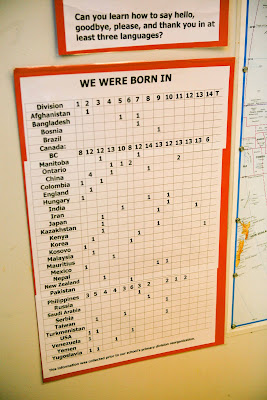 Can you learn how to say hello,
goodbye, please, and thank you in at
least three languages?
WE WERE BORN IN
Division 1 2 3 4 5 6 7 8 9 10 11 12 13 14 T
Afghanistan 1
Bangladesh 1 1
Bosnia 1
Brazil 1
Canada:
BC 8 12 12 12 13 10 8 12 14 12 13 13 13 6
Manitoba 1 1
Ontario 1 1 2 2
China 4 1
Colombia 1 1
England 1
Hungary 1 1
India 1 1
Iran 1
Japan 1
Kazakhstan 1 1
Kenya 1
Korea 1 1
Kosovo 1
Malaysia 1
Mauritius 1
Mexico 1
Nepal 1
New Zealand 1
Pakistan 1
Philippines 3 5 4 4 3 6 3 2 2 1 2
Russia
Saudi Arabia 1
Serbia 1
Taiwan 1
Turkmenistan 1
USA 1 1
Venezuela 1
Yemen 1 1
Yugoslavia 1
This information was collected prior to our school's primary division reorganization.